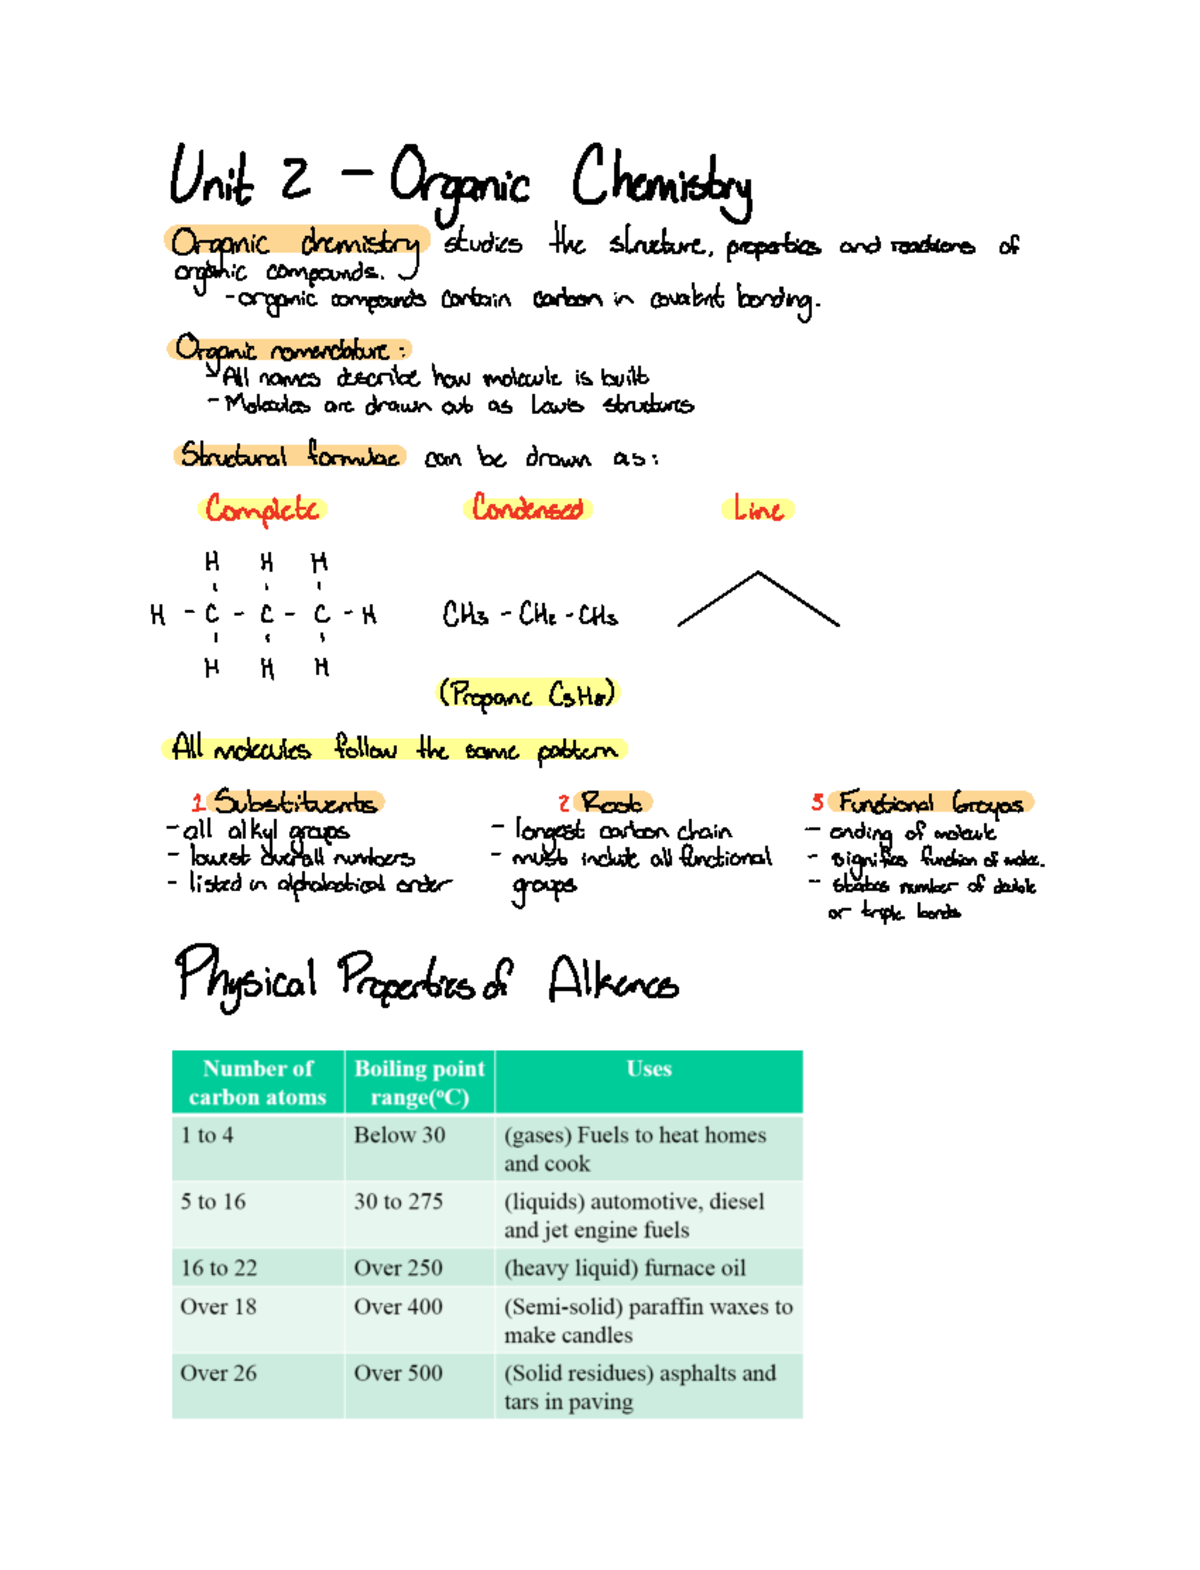 Unit 2 - Organic Chemistry
Organic chemistry studies the structure, properties and reactions of
organic compounds.
- organic compounds contain carbon in covalent bonding.
Organic nomenclature:
All names describe how molecule is built
- Molecules are drawn out as Lewis structures
Structural formulae can be drawn as:
Complete Condensed Line
H H H
H - C - C - C - H CH3 - CH2 - CH3
H H H
(Propane C3H8)
All molecules follow the same pattern
1 Substituents 2 Root 3 Functional Groups
- all alkyl groups - longest carbon chain - ending of molecule
- lowest overall numbers - must include all functional - signifies function of molec.
- listed in alphabetical order groups - states number of double
or triple bonds
Physical Properties of Alkenes
Number of Boiling point Uses
carbon atoms range(°C)
1 to 4 Below 30 (gases) Fuels to heat homes
and cook
5 to 16 30 to 275 (liquids) automotive, diesel
and jet engine fuels
16 to 22 Over 250 (heavy liquid) furnace oil
Over 18 Over 400 (Semi-solid) paraffin waxes to
make candles
Over 26 Over 500 (Solid residues) asphalts and
tars in paving